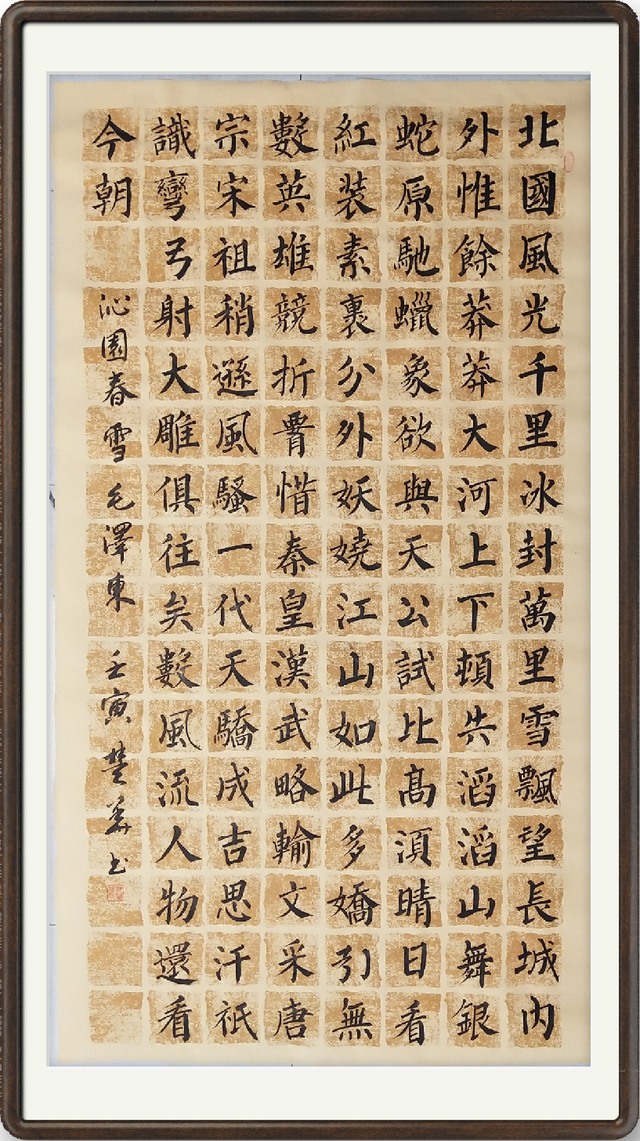 北國風光千里冰封萬里雪飄望長城内
外惟餘莽莽大河上下頓失滔滔山舞銀
蛇原馳蠟象欲與天公試比高須晴日看
紅裝素裹分外妖嬈江山如此多嬌引無
數英雄競折腰惜秦皇漢武略輸文采唐
宗宋祖稍遜風騷一代天驕成吉思汗祇
識彎弓射大雕俱往矣數風流人物還看
今朝
沁園春雪毛澤東 壬寅楚书